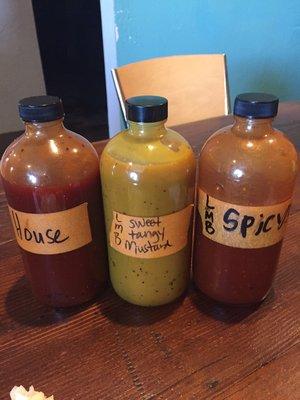 House
LMB
Sweet
tangy
Mustard
LMB
Spicy